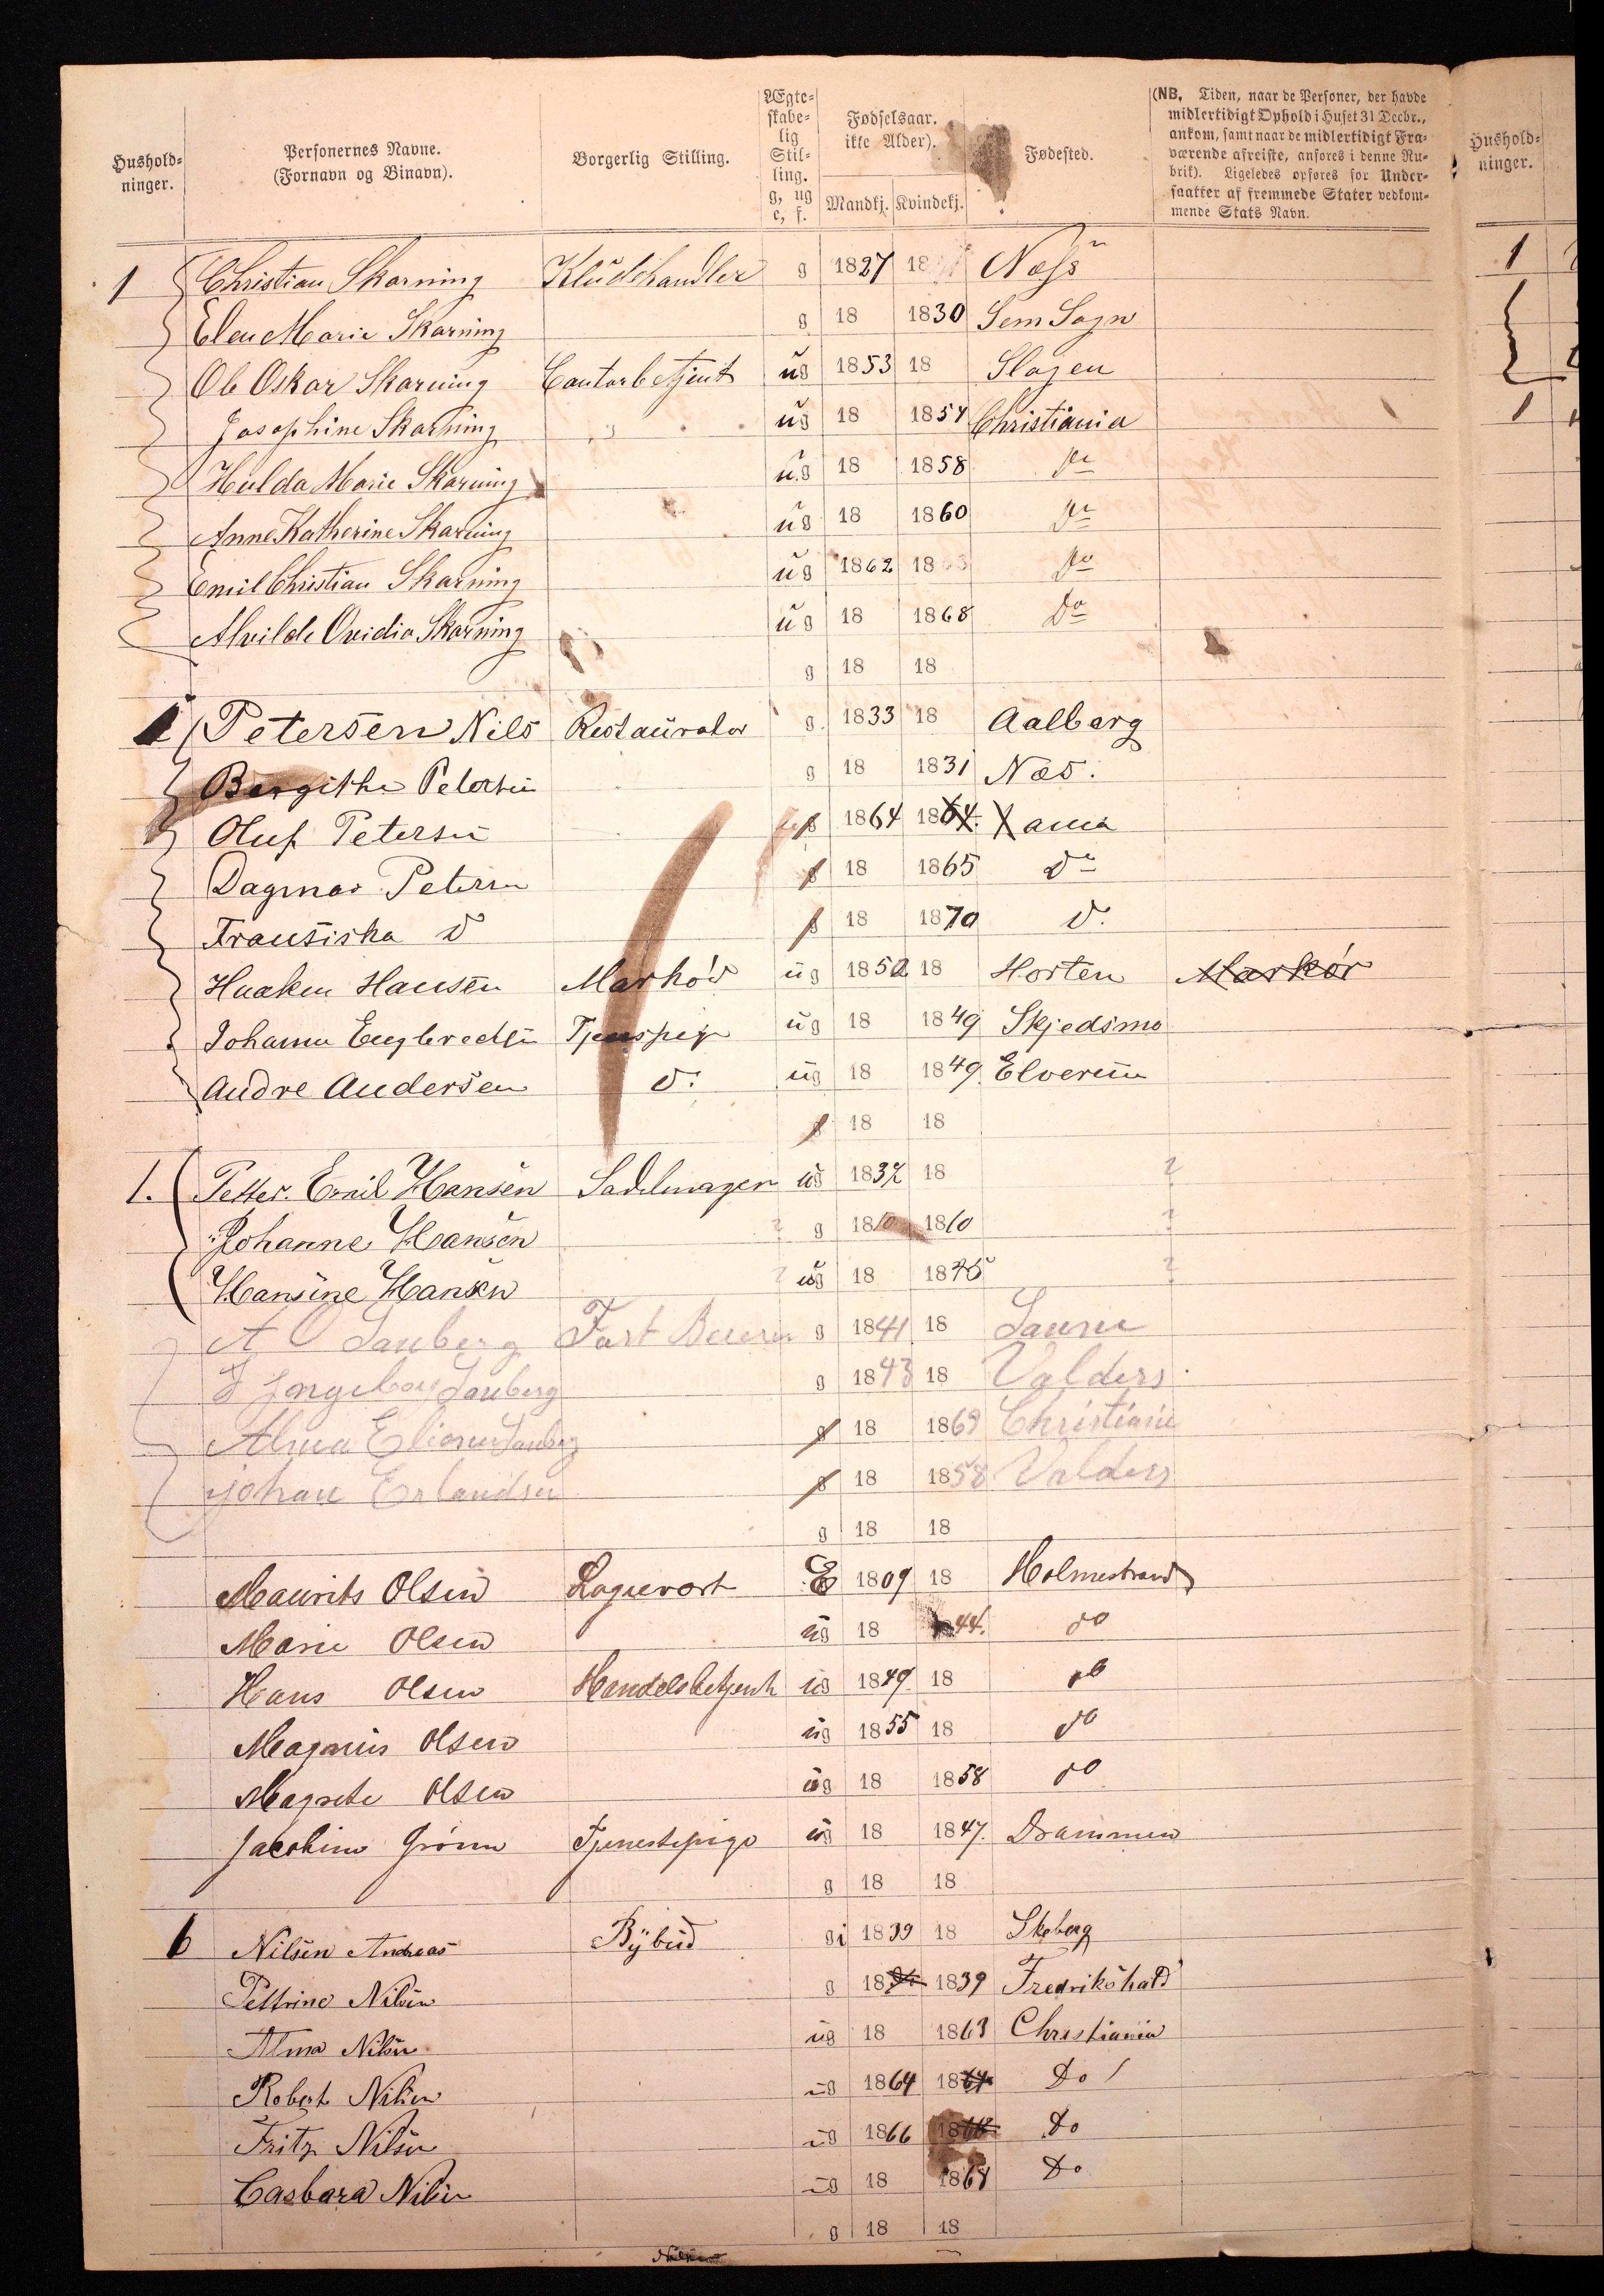 Hushold-
ninger.
Personernes Navne.
(Fornavn og Binavn).
Borgerlig Stilling.
Ægte-
skabe-
lig
Stil-
ling.
g, ug
e, f.
Fødselsaar.
ikke Alder).
Mandkj. Kvindekj.
Fødested.
(NB. Tiden, naar de Personer, der havde
midlertidigt Ophold i Huset 31 Decbr.,
ankom, samt naar de midlertidigt Fra-
værende afreiste, anføres i denne Ru-
brik). Ligeledes opføres for Under-
saatter af fremmede Stater vedkom-
mende Stats Navn.
Hushold-
ninger.
1 Christian Skarning Kludehandler g 1827 18 Næss 1
Elen Marie Skarning g 18 1830 Sem Sogn
Ole Oskar Skarning Contorbetjent ug 1853 18 Slagen
Josephine Skarning ug 18 1857 Christiania 1
Hulda Marie Skarning ug 18 1858 Do
Anne Katherine Skarning ug 18 1860 Do
Emil Christian Skarning ug 1862 18 Do
Alvilde Ovidia Skarning ug 18 1868 Do
g 18 18
1 Petersen Nils Restauratør g 1833 18 Aalborg
Bergithe Petersen g 18 1831 Næs.
Oluf Petersen g 1864 1864 Xania
Dagmar Petersen g 18 1865 Do
Fransiska D g 18 1870 D.
Haaken Hansen Markør ug 1852 18 Horten Markør
Johanne Englbrechtsen Tjenspige ug 18 1849 Skjedsmo
Andre Andersen D: ug 18 1849 Elverum
g 18 18
1. Petter. Emil Hansen Sadelmager ug 1837 18 ?
Johanne Hansen ? g 1810 1810 ?
Hansine Hansen ? ug 18 1875 ?
A O Sanberg Fast g 1841 18
Ingebor Sanberg g 1843 18 Valders
Alma Sanberg g 18 1869 Christiania
Johan Erlandsen g 18 1858 Valders
g 18 18
Maurits Olsen E 1809 18 Holmestrand
Marie Olsen ug 18 44. do
Hans Olsen Handelsbetjent ug 1849 18 do
Magnus Olsen ug 1855 18 do
Magrete Olsen ug 18 1858 do
Jacobine Grønn Tjenestepige ug 18 1847. Drammen
g 18 18
6 Nilsen Andreas Bybud gi 1839 18 Skeberg
Pettrine Nilsen g 18 1839 Fredrikshald
Alma Nilsen ug 18 1863 Christiania
Robert Nilsen ug 1864 1864 Do
Fritz Nilsen ug 1866 18 Do
Casbara Nilsen ug 18 1868 Do
g 18 18